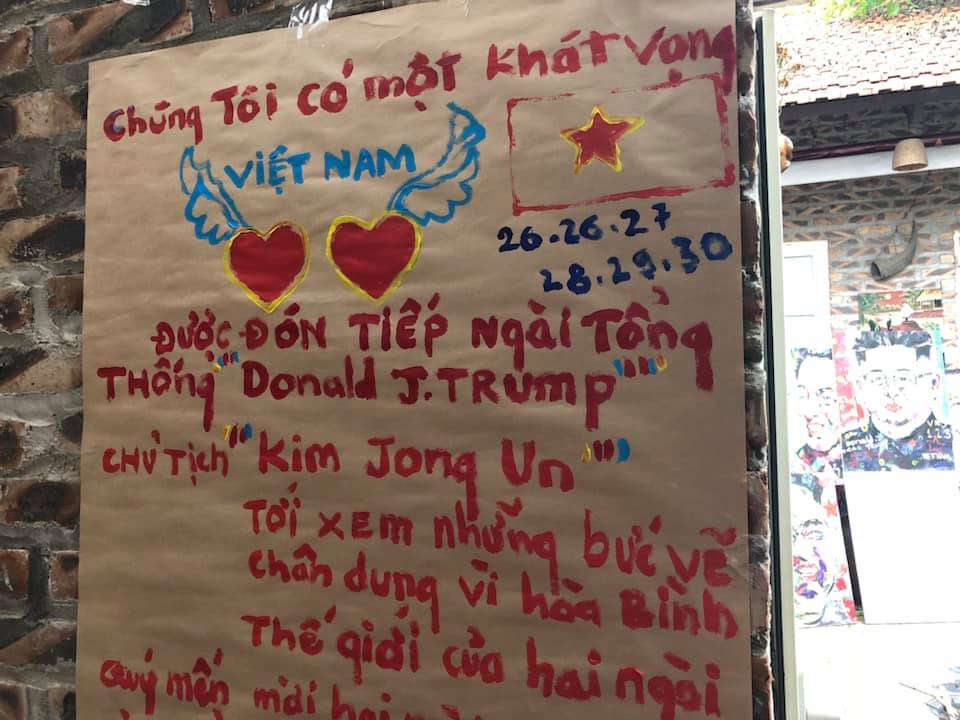 Chúng Tôi có một khát vọng
VIỆT NAM
26.26.27
28.29.30
ĐƯỢC ĐÓN TIẾP NGÀI TỔNG
THỐNG "Donald J.TRUMP"
CHỦ TỊCH "Kim Jong Un"
TỚI XEM những bức vẽ
chân dung vì hòa BÌNH
Thế giới của hai ngài
Quý mến mời hai